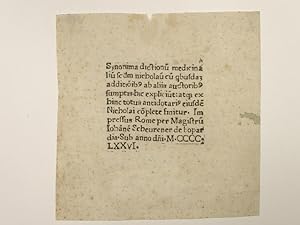 Synonima dictionũ medicina
liũ ſcďm nicholaũ cũ qbuſdaȝ
additiõibꝰ ab aliis auctoribꝰ
ſumptis hic expliciũt: atqȝ ex
hinc totus antidotariꝰ eiuſdẽ
Nicholai cõplete finitur. Im
preſſus Rome per Magiſtrũ
Iohãnẽ Scheurener de bopar
dia. Sub anno dñi. M. CCCC.
LXXVI.